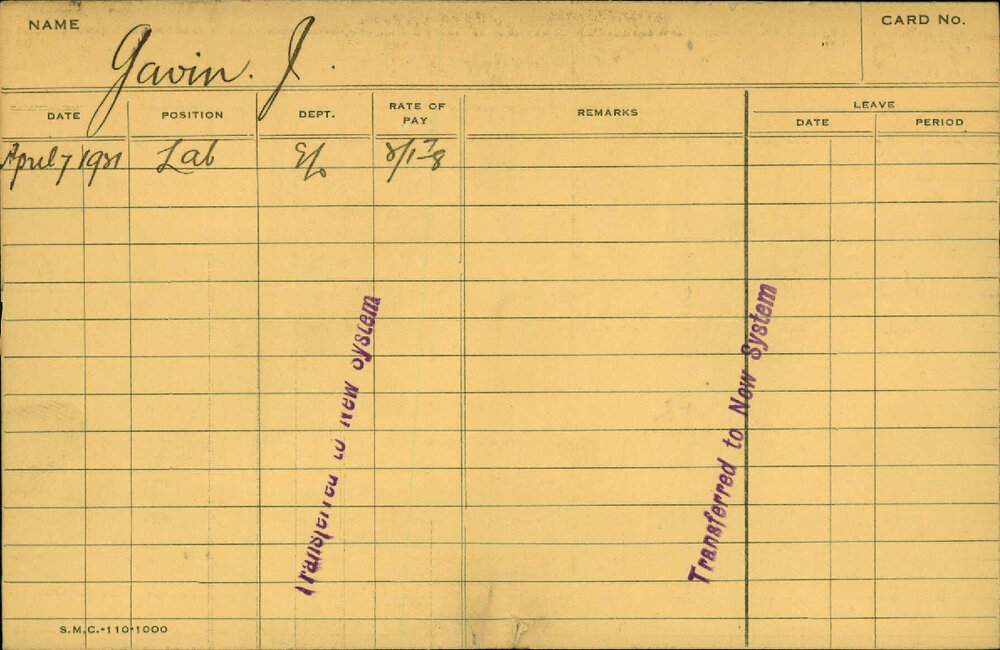 NAME
CARD No.
Gavin. J.
DATE POSITION DEPT. RATE OF PAY REMARKS LEAVE
DATE PERIOD
April 7 1921 Lab
Transferred to New System
Transferred to New System
S.M.C.-110-1000